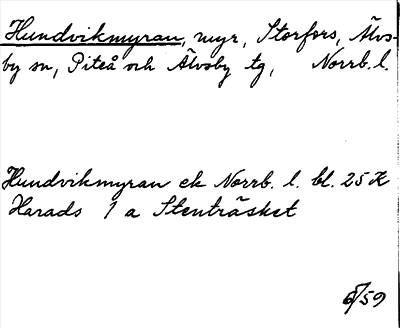 Hundvikmyran, myr, Storfors, Älvs-
by sn, Piteå och Älvsby tg, Norrb. l.
Hundvikmyran ek Norrb. l. bl. 25 K
Harads 1 a Stenträsket
6/59